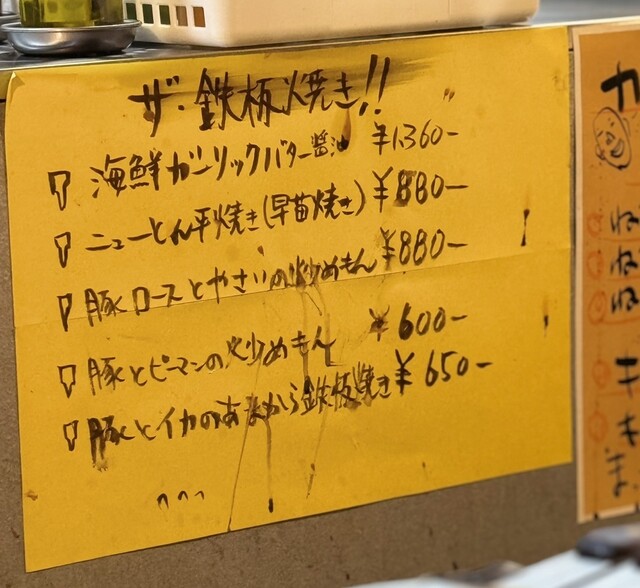 ザ・鉄板焼き!!
海鮮ガーリックバター醤油 ¥1.360-
ニューとん平焼き(早苗焼き) ¥880-
豚ロースとやさいの炒めもん ¥880-
豚とピーマンの炒めもん ¥600-
豚とイカのあまから鉄板焼き ¥650-
カ
ね
ね
ね
キ
キ
ま